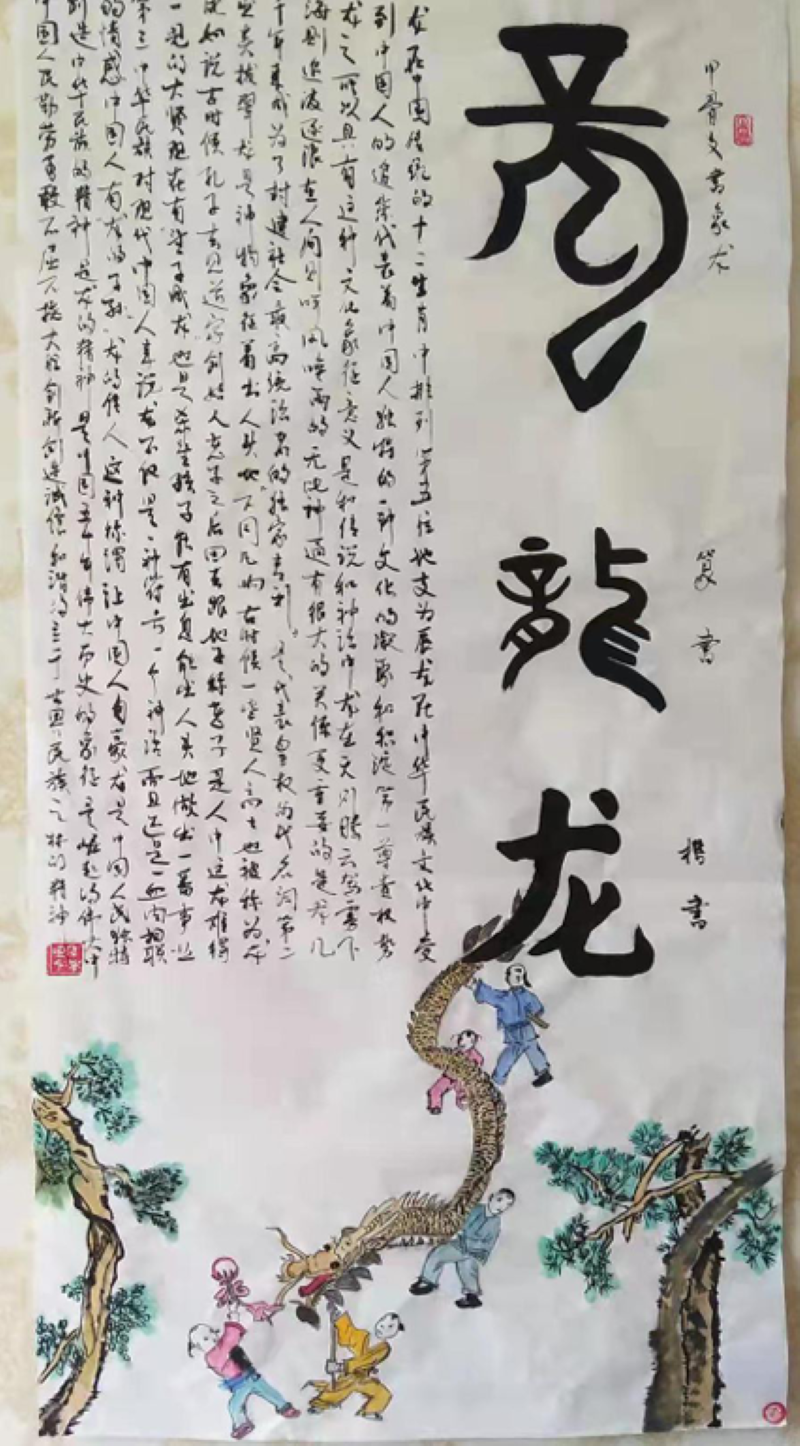 甲骨文書象龙
篆書
楷書
龍
龍
龙
龙在中国传统的十二生肖中排列第五位地支为辰龙在中华民族文化中受
到中国人的追崇代表着中国人独特的一种文化的凝聚和积淀第一尊贵权势
龙之所以具有这种文化象征意义是和传说和神话中龙在天则腾云驾雾下
海则追波逐浪在人间则呼风唤雨的无比神通有很大的关系更重要的是龙几
千年来成为了封建社会最高统治者的独家专利是代表皇权的代名词第二
出类拔翠龙是神物象征着出人头地不同凡响古时候一些贤人高士也被称为龙
比如说古时候孔子去见道家创始人老子之后回去跟他子称老子是人中这龙难得
一见的大贤现在有望子成龙也是希望孩子能有出息能出人头地做出一番事业
第三中华民族对现代中国人来说龙不仅是一种符号一个神话而且还是一血肉相联
的情感中国人有龙的子孙龙的传人这种称谓让中国人自豪龙是中国人民独特
创造中华民族的精神是龙的精神是中国五千年伟大历史的象征是崛起的伟大中
中国人民勤劳勇敢不屈不挠大胆创新创造诚信和谐的立于世界民族之林的精神